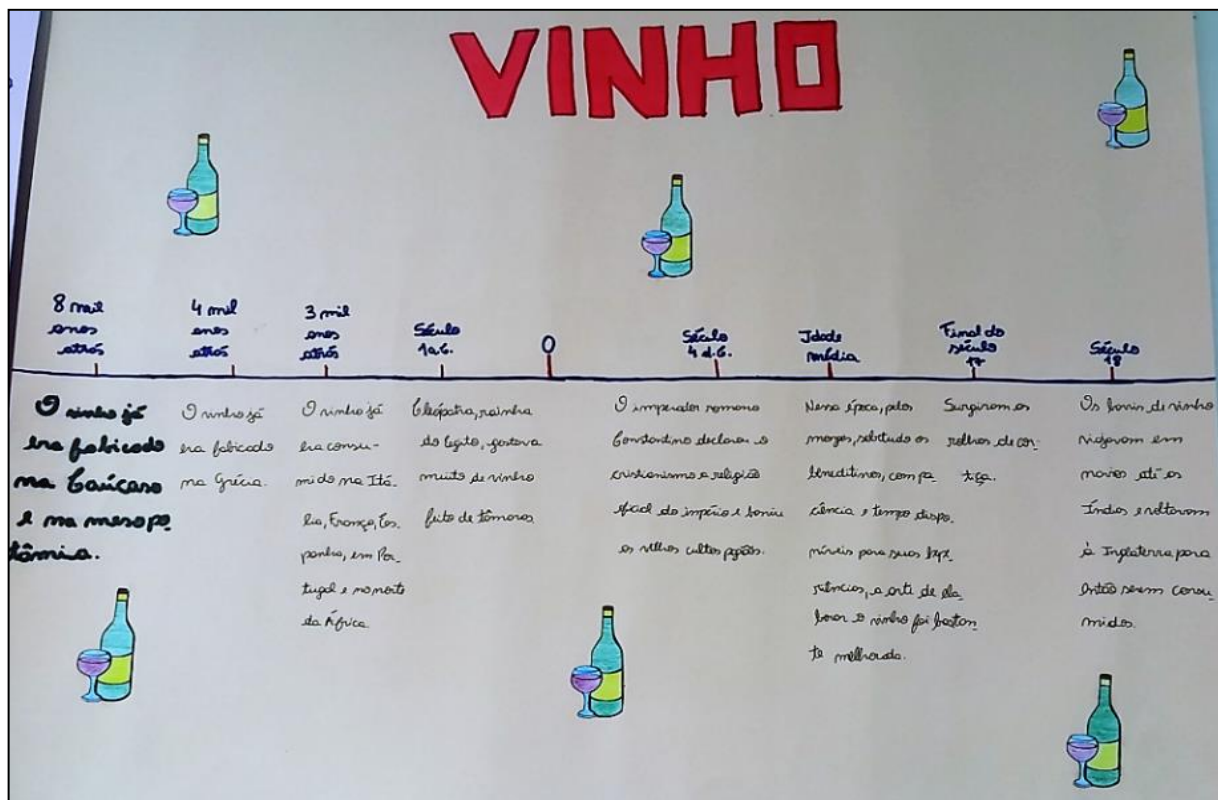 VINHO
8 mil
anos
atrás
4 mil
anos
atrás
3 mil
anos
atrás
Século
1 a.C.
0
Século
4 d.C.
Idade
média
Final do
século
17
Século
18
O vinho já
era fabicado
na Caúcaso
e na mesopo
tâmia.
O vinho já
era fabicado
na Grécia.
O vinho já
era consu-
mido na Itá-
lia, França, Es-
panha, em Por-
tugal e no norte
da África.
Cleópatra, rainha
do Egito, gostava
muito de vinho
feito de tâmaras
O imperador romano
Constantino declarou o
cristianismo a religião
oficial do império e baniu
os velhos cultos pagãos.
Nessa época, pelos
monges, sobretudo os
beneditinos, com pa
ciência e tempo dispo-
níveis para suas expe
riências, a arte de ela-
borar o vinho foi bastan-
te melhorada.
Surgiram as
rolhas de cor-
tiça.
Os barris de vinho
viajavam em
navios até as
Índias e voltavam
à Inglaterra para
então serem consu-
midos.